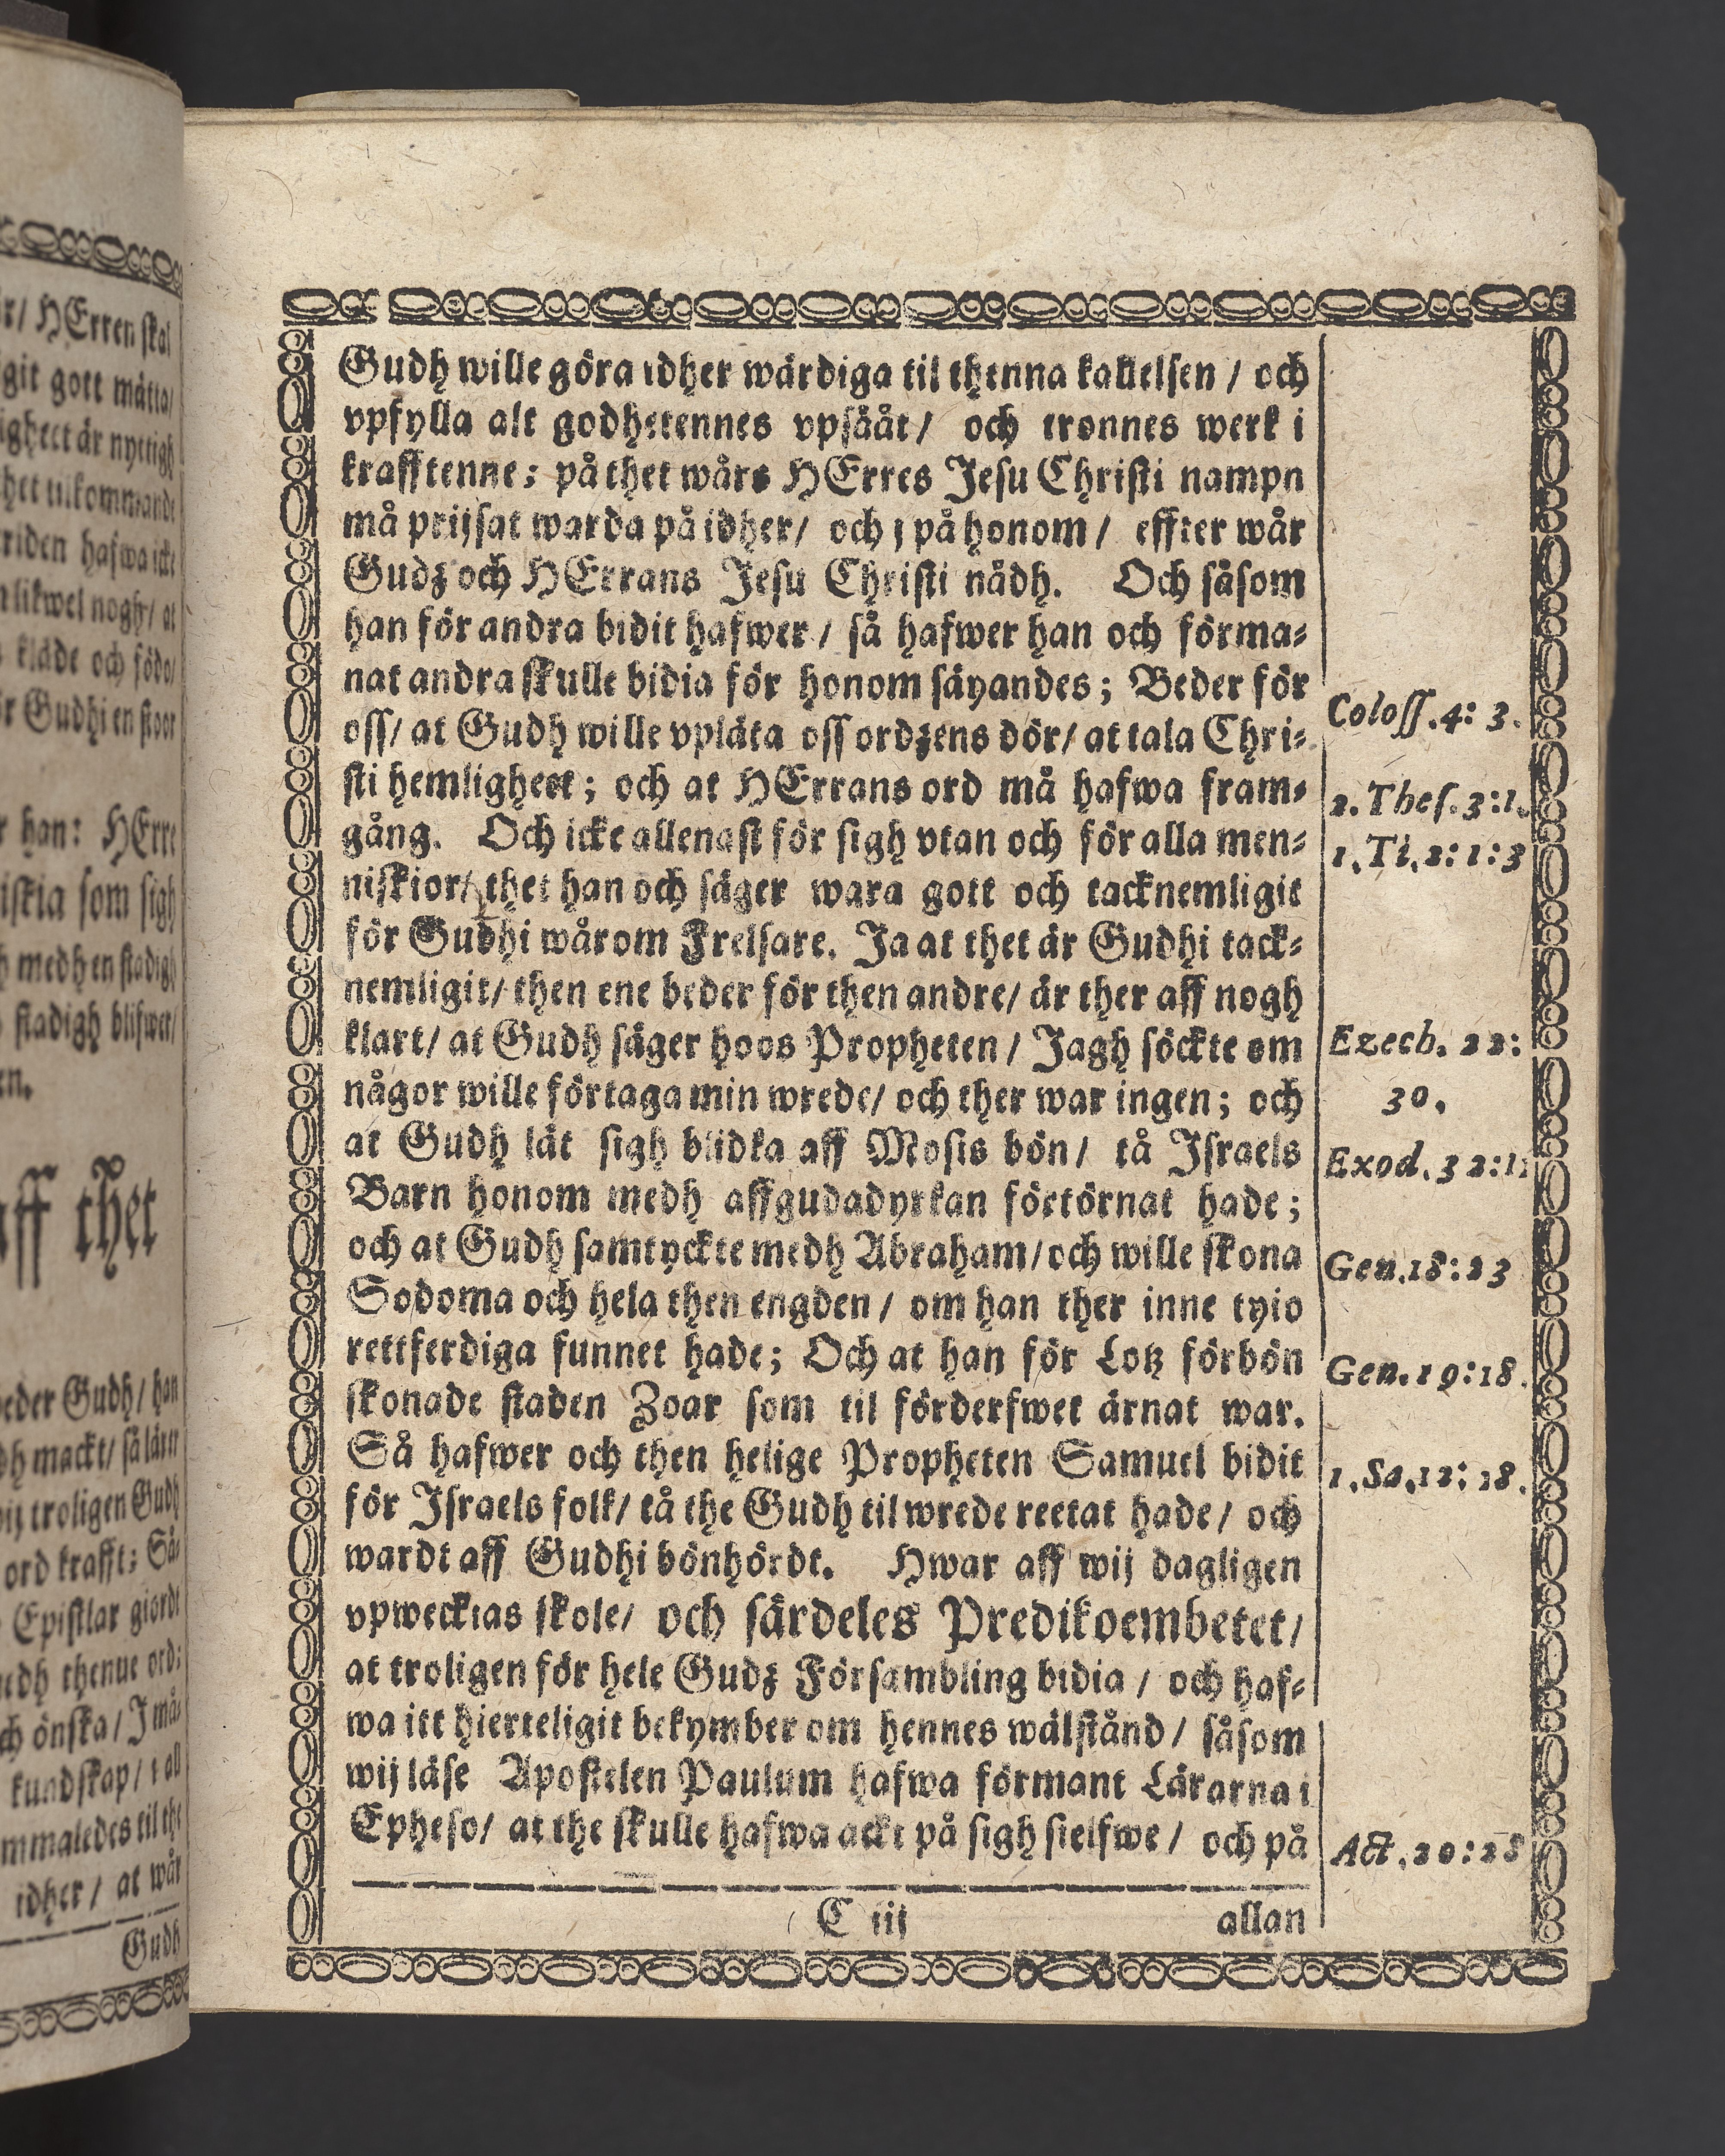 Gudh wille göra idher wärdiga til thenna kallelsen / och
vpfylla alt godhetennes vpsååt / och tronnes werk i
krafftenne; på thet wårs HErres Jesu Christi nampn
må prijsat warda på idher / och j på honom / effter wår
Gudz och HErrans Jesu Christi nådh. Och såsom
han för andra bidit hafwer / så hafwer han och förma-
nat andra skulle bidia för honom säyandes; Beder för
oss / at Gudh wille vplåta oss ordzens dör / at tala Chri-
Coloss. 4: 3.
sti hemligheet; och at HErrans ord må hafwa fram-
2. Thes. 3:1.
gång. Och icke allenast för sigh vtan och för alla men-
1. Ti. 2: 1: 3
niskior / thet han och säger wara gott och tacknemligit
för Gudhi wårom Frelsare. Ja at thet är Gudhi tack-
nemligit / then ene beder för then andre / är ther aff nogh
klart / at Gudh säger hoos Propheten / Jagh söckte om
Ezech. 22:
någor wille förtaga min wrede / och ther war ingen; och
30.
at Gudh lät sigh blidka aff Mosis bön / tå Israels
Exod. 32:1
Barn honom medh affgudadyrkan förtörnat hade;
och at Gudh samtyckte medh Abraham / och wille skona
Gen. 18: 23
Sodoma och hela then engden / om han ther inne tyio
rettferdiga funnet hade; Och at han för Lotz förbön
Gen. 19:18.
skonade staden Zoar som til förderfwet ärnat war.
Så hafwer och then helige Propheten Samuel bidit
1. Sa. 12: 18.
för Israels folk / tå the Gudh til wrede reetat hade / och
wardt aff Gudhi bönhördt. Hwar aff wij dagligen
vpwecktas skole / och särdeles Predikoembetet /
at troligen för hele Gudz Försambling bidia / och haf-
wa itt hierteligit bekymber om hennes wälstånd / såsom
wij läse Apostelen Paulum hafwa förmant Lärarna i
Epheso / at the skulle hafwa ackt på sigh sielfwe / och på
Act. 20: 28
C iij
allan